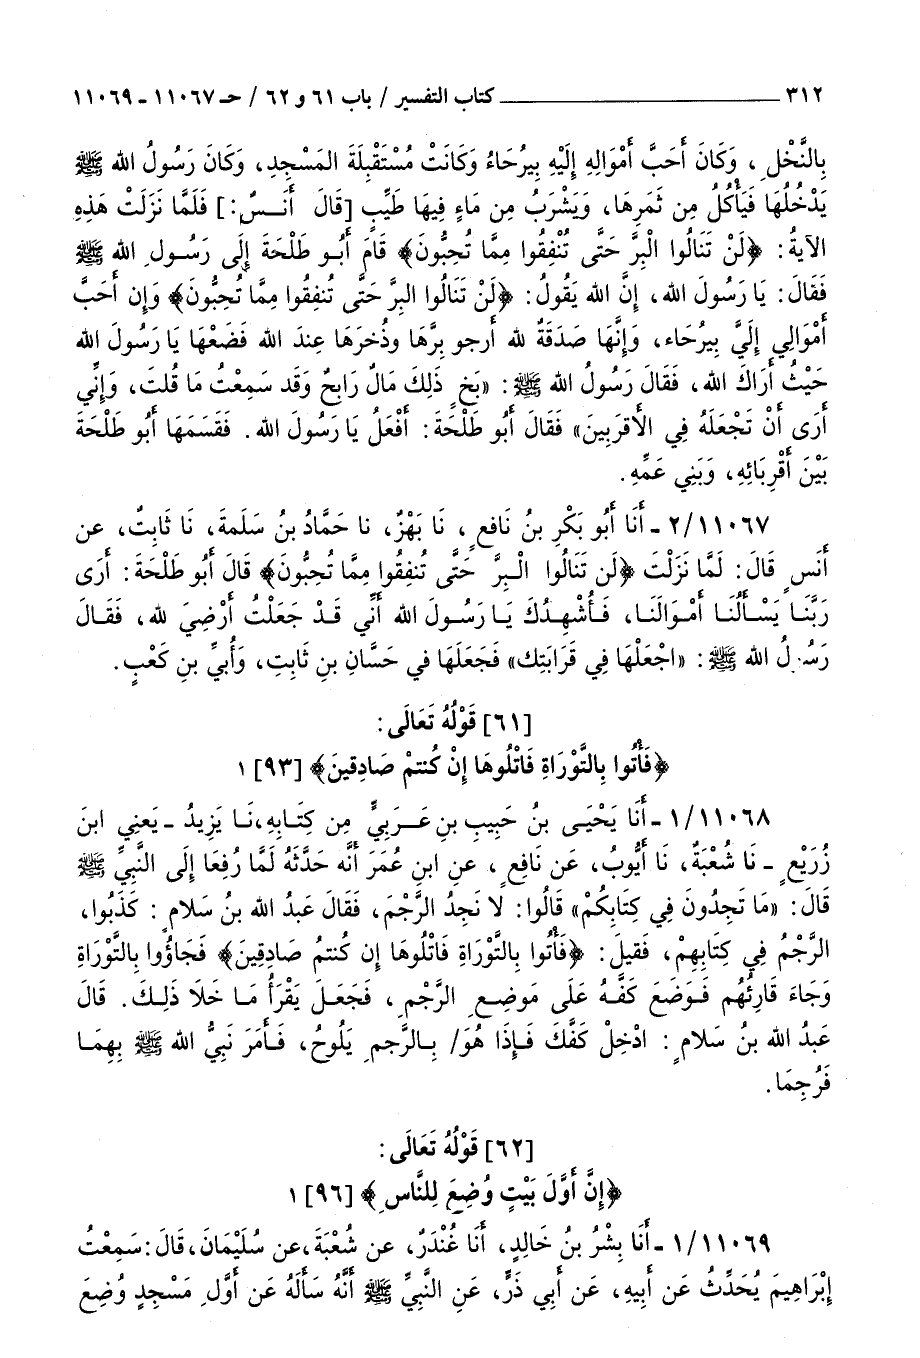 ٣١٢ ــــــــــــــــــــــــــــــــ كتاب التفسير / باب ٦١ و ٦٢ / حـ ١١٠٦٧ ـ ١١٠٦٩
بِالنَّخْلِ، وَكَانَ أَحَبَّ أَمْوَالِهِ إِلَيْهِ بِيرُحَاءُ وَكَانَتْ مُسْتَقْبِلَةَ المَسْجِدِ، وَكَانَ رَسُولُ الله ﷺ
يَدْخُلُهَا فَيَأْكُلُ مِن ثَمَرِهَا، وَيَشْرَبُ مِن مَاءٍ فِيهَا طَيِّبٍ [قَالَ أَنَسٌ:] فَلَمَّا نَزَلَتْ هَذِهِ
الآيةُ: ﴿لَنْ تَنَالُوا الْبِرَّ حَتَّى تُنْفِقُوا مِمَّا تُحِبُّونَ﴾ قَامَ أَبُو طَلْحَةَ إِلَى رَسُولِ الله ﷺ
فَقَالَ: يَا رَسُولَ الله، إِنَّ الله يَقُولُ: ﴿لَنْ تَنَالُوا البِرَّ حَتَّى تُنفِقُوا مِمَّا تُحِبُّونَ﴾ وَإِن أَحَبَّ
أَمْوَالِي إِلَيَّ بِيرُحَاء، وَإِنَّهَا صَدَقَةٌ لله أَرجو بِرَّهَا وذُخرَهَا عِندَ الله فَضَعْهَا يَا رَسُولَ الله
حَيْثُ أَرَاكَ الله، فَقَالَ رَسُولُ الله ﷺ: «بَخٍ ذَلِكَ مَالٌ رَابحٌ وَقَد سَمِعْتُ مَا قُلتَ، وَإِنِّي
أَرَى أَنْ تَجْعَلَهُ فِي الأَقرَبِينَ» فَقَالَ أَبُو طَلْحَةَ: أَفْعَلُ يَا رَسُولَ الله. فَقَسَمَهَا أَبُو طَلْحَةَ
بَيْنَ أَقْرِبَائِهِ، وَبَنِي عَمِّهِ.
٢/١١٠٦٧ ـ أَنَا أَبُو بَكْرِ بنُ نَافعٍ، نَا بَهْزٌ، نا حَمَّادُ بنُ سَلَمةَ، نَا ثَابتٌ، عن
أَنَسٍ قَالَ: لَمَّا نَزَلَتْ ﴿لَن تَنَالُوا الْبِرَّ حَتَّى تُنفِقُوا مِمَّا تُحِبُّونَ﴾ قَالَ أَبُو طَلْحَةَ: أَرَى
رَبَّنَا يَسْأَلُنَا أَمْوَالَنَا، فَأُشْهِدُكَ يَا رَسُولَ الله أَنِّي قَدْ جَعَلْتُ أَرْضِيَ لله، فَقَالَ
رَسُولُ الله ﷺ: «اجْعَلْهَا فِي قَرَابَتِكَ» فَجَعَلَهَا في حَسَّانِ بنِ ثَابِتٍ، وَأُبيِّ بنِ كَعْبٍ.
[٦١] قَوْلُهُ تَعَالَى:
﴿فَأْتُوا بِالتَّوْرَاةِ فَاتْلُوهَا إِنْ كُنتمْ صَادِقينَ﴾ [٩٣] ١
١/١١٠٦٨ ـ أَنَا يَحْيَى بنُ حَبِيبِ بنِ عَرَبيٍّ مِن كِتَابِهِ، نَا يَزِيدُ ـ يَعنِي ابنَ
زُرَيْعٍ ـ نَا شُعْبَةُ، نَا أَيُّوبُ، عَن نَافعٍ، عنِ ابنِ عُمَرَ أَنَّه حَدَّثَهُ لَمَّا رُفِعَا إِلَى النَّبيِّ ﷺ
قَالَ: «مَا تَجِدُونَ فِي كِتَابِكُمْ» قَالُوا: لا نَجِدُ الرَّجْمَ، فَقَالَ عَبدُ الله بنُ سَلامٍ: كَذَبُوا،
الرَّجْمُ فِي كِتَابِهِمْ، فَقِيلَ: ﴿فَأْتُوا بِالتَّوْرَاةِ فَاتْلُوهَا إِن كُنتمُ صَادِقِينَ﴾ فَجَاؤُوا بِالتَّوْرَاةِ
وَجَاءَ قَارِئُهُم فَوَضَعَ كَفَّهُ عَلَى مَوضِعِ الرَّجْمِ، فَجَعَلَ يَقْرَأُ مَا خَلاَ ذَلِكَ. قَالَ
عَبدُ الله بنُ سَلامٍ: ادْخِلْ كَفَّكَ فَإِذَا هُوَ/ بِالرَّجمِ يَلُوحُ، فَأَمَرَ نَبيُّ الله ﷺ بِهِمَا
فَرُجِمَا.
[٦٢] قَوْلُهُ تَعَالَى:
﴿إِنَّ أَوَّلَ بَيْتٍ وُضِعَ لِلنَّاسِ﴾ [٩٦] ١
١/١١٠٦٩ ـ أَنَا بِشْرُ بنُ خَالِدٍ، أَنَا غُنْدَرٌ، عن شُعْبَةَ، عن سُلَيْمَانَ، قَالَ: سَمِعْتُ
إِبْرَاهِيمَ يُحَدِّثُ عَن أَبِيهِ، عَن أَبِي ذَرٍّ، عَنِ النَّبيِّ ﷺ أَنَّهُ سَأَلَهُ عَن أَوَّلِ مَسْجِدٍ وُضِعَ